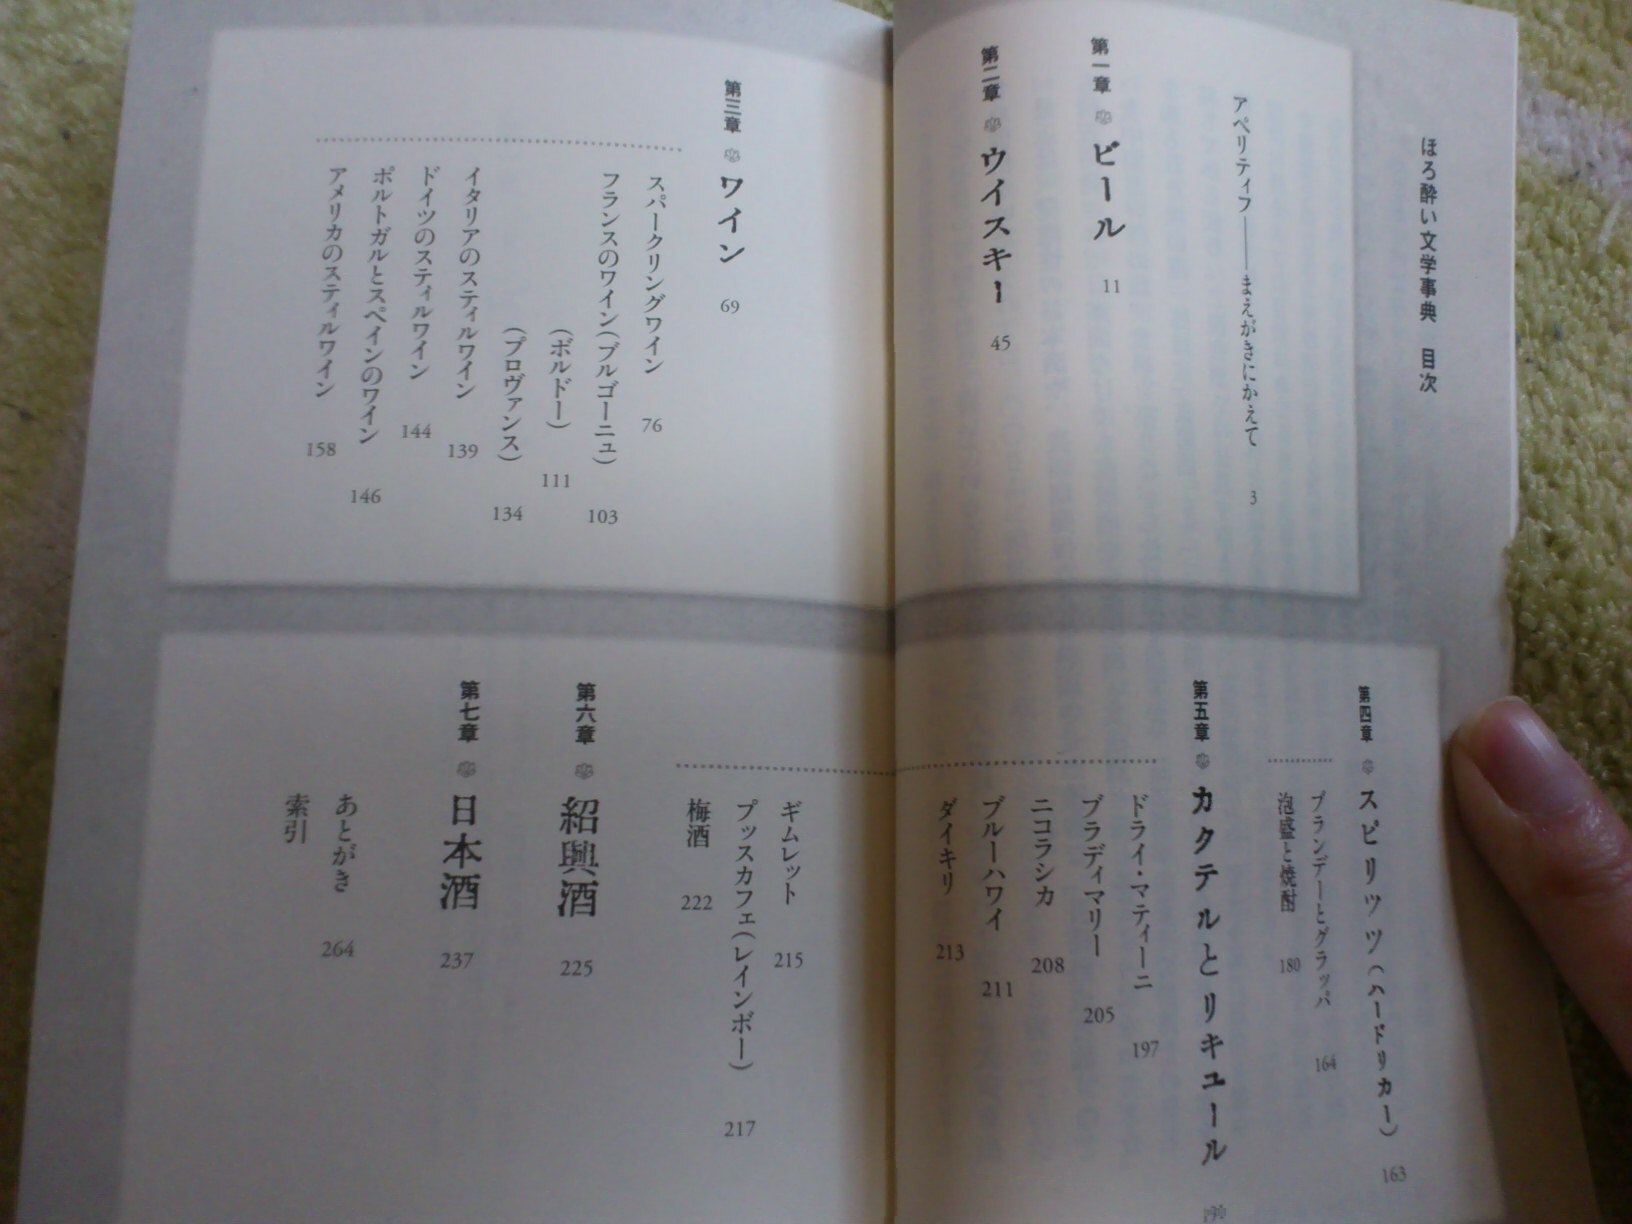 ほろ酔い文学事典　目次
アペリティフ――まえがきにかえて　3
第一章　ビール　11
第二章　ウイスキー　45
第三章　ワイン　69
スパークリングワイン　76
フランスのワイン（ブルゴーニュ）　103
（ボルドー）　111
（プロヴァンス）　134
イタリアのスティルワイン　139
ドイツのスティルワイン　144
ポルトガルとスペインのワイン　146
アメリカのスティルワイン　158
第四章　スピリッツ（ハードリカー）　163
ブランデーとグラッパ　164
泡盛と焼酎　180
第五章　カクテルとリキュール　190
ドライ・マティーニ　197
ブラディマリー　205
ニコラシカ　208
ブルーハワイ　211
ダイキリ　213
ギムレット　215
プッスカフェ（レインボー）　217
梅酒　222
第六章　紹興酒　225
第七章　日本酒　237
あとがき　264
索引